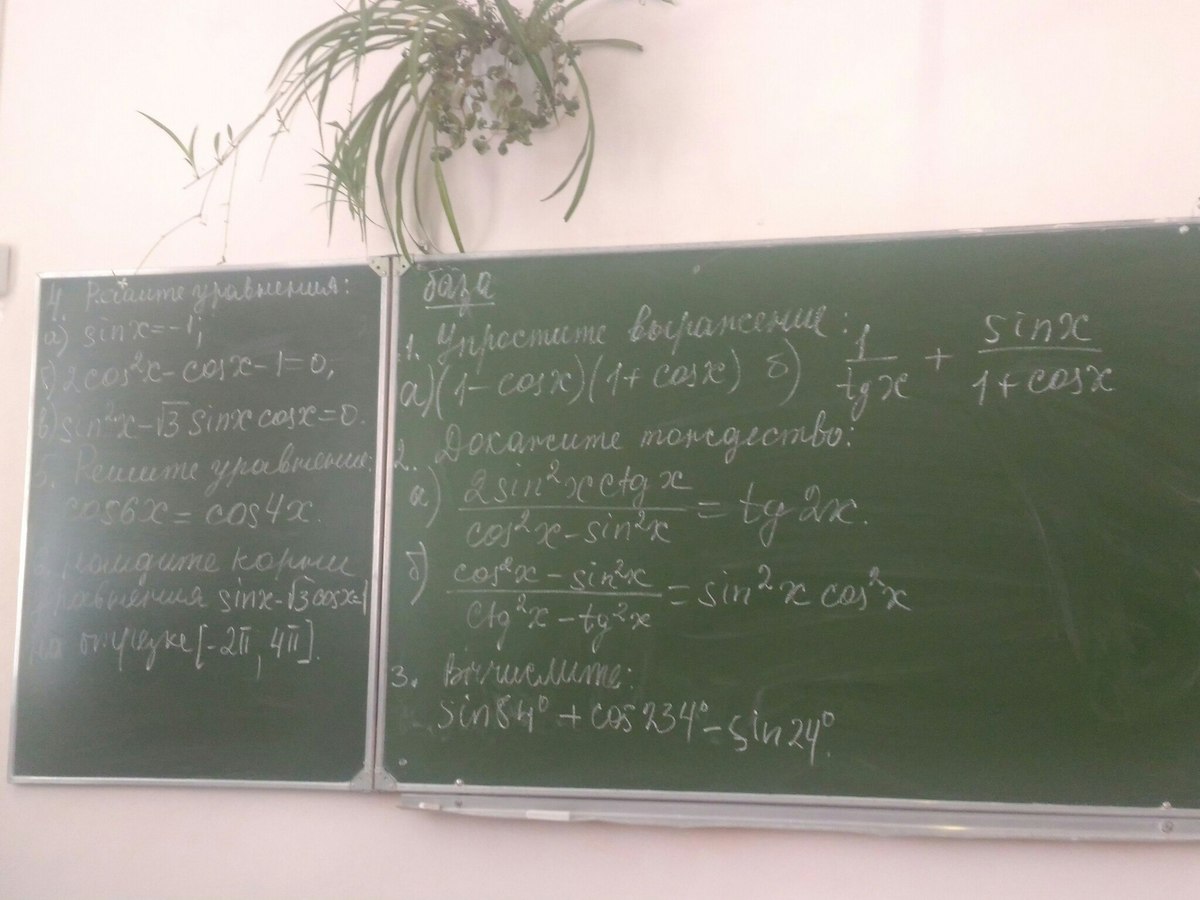 4. Решите уравнения:
а) sinx=-1;
б) 2cos²x-cosx-1=0,
в) sin²x-√3 sinx cosx=0.
5. Решите уравнения:
cos6x = cos4x.
найдите корни
уравнения sinx-√3cosx=1
на отрезке [-2π, 4π].
база
1. Упростите выражение:
а) (1-cosx)(1+cosx) б) 1/tgx + sinx/(1+cosx)
2. Докажите тождество:
а) 2sin²x ctgx/(cos²x-sin²x) = tg2x.
б) (cos²x-sin²x)/(ctg²x-tg²x) = sin²x cos²x
3. Вычислите:
sin84° + cos234° - sin24°.